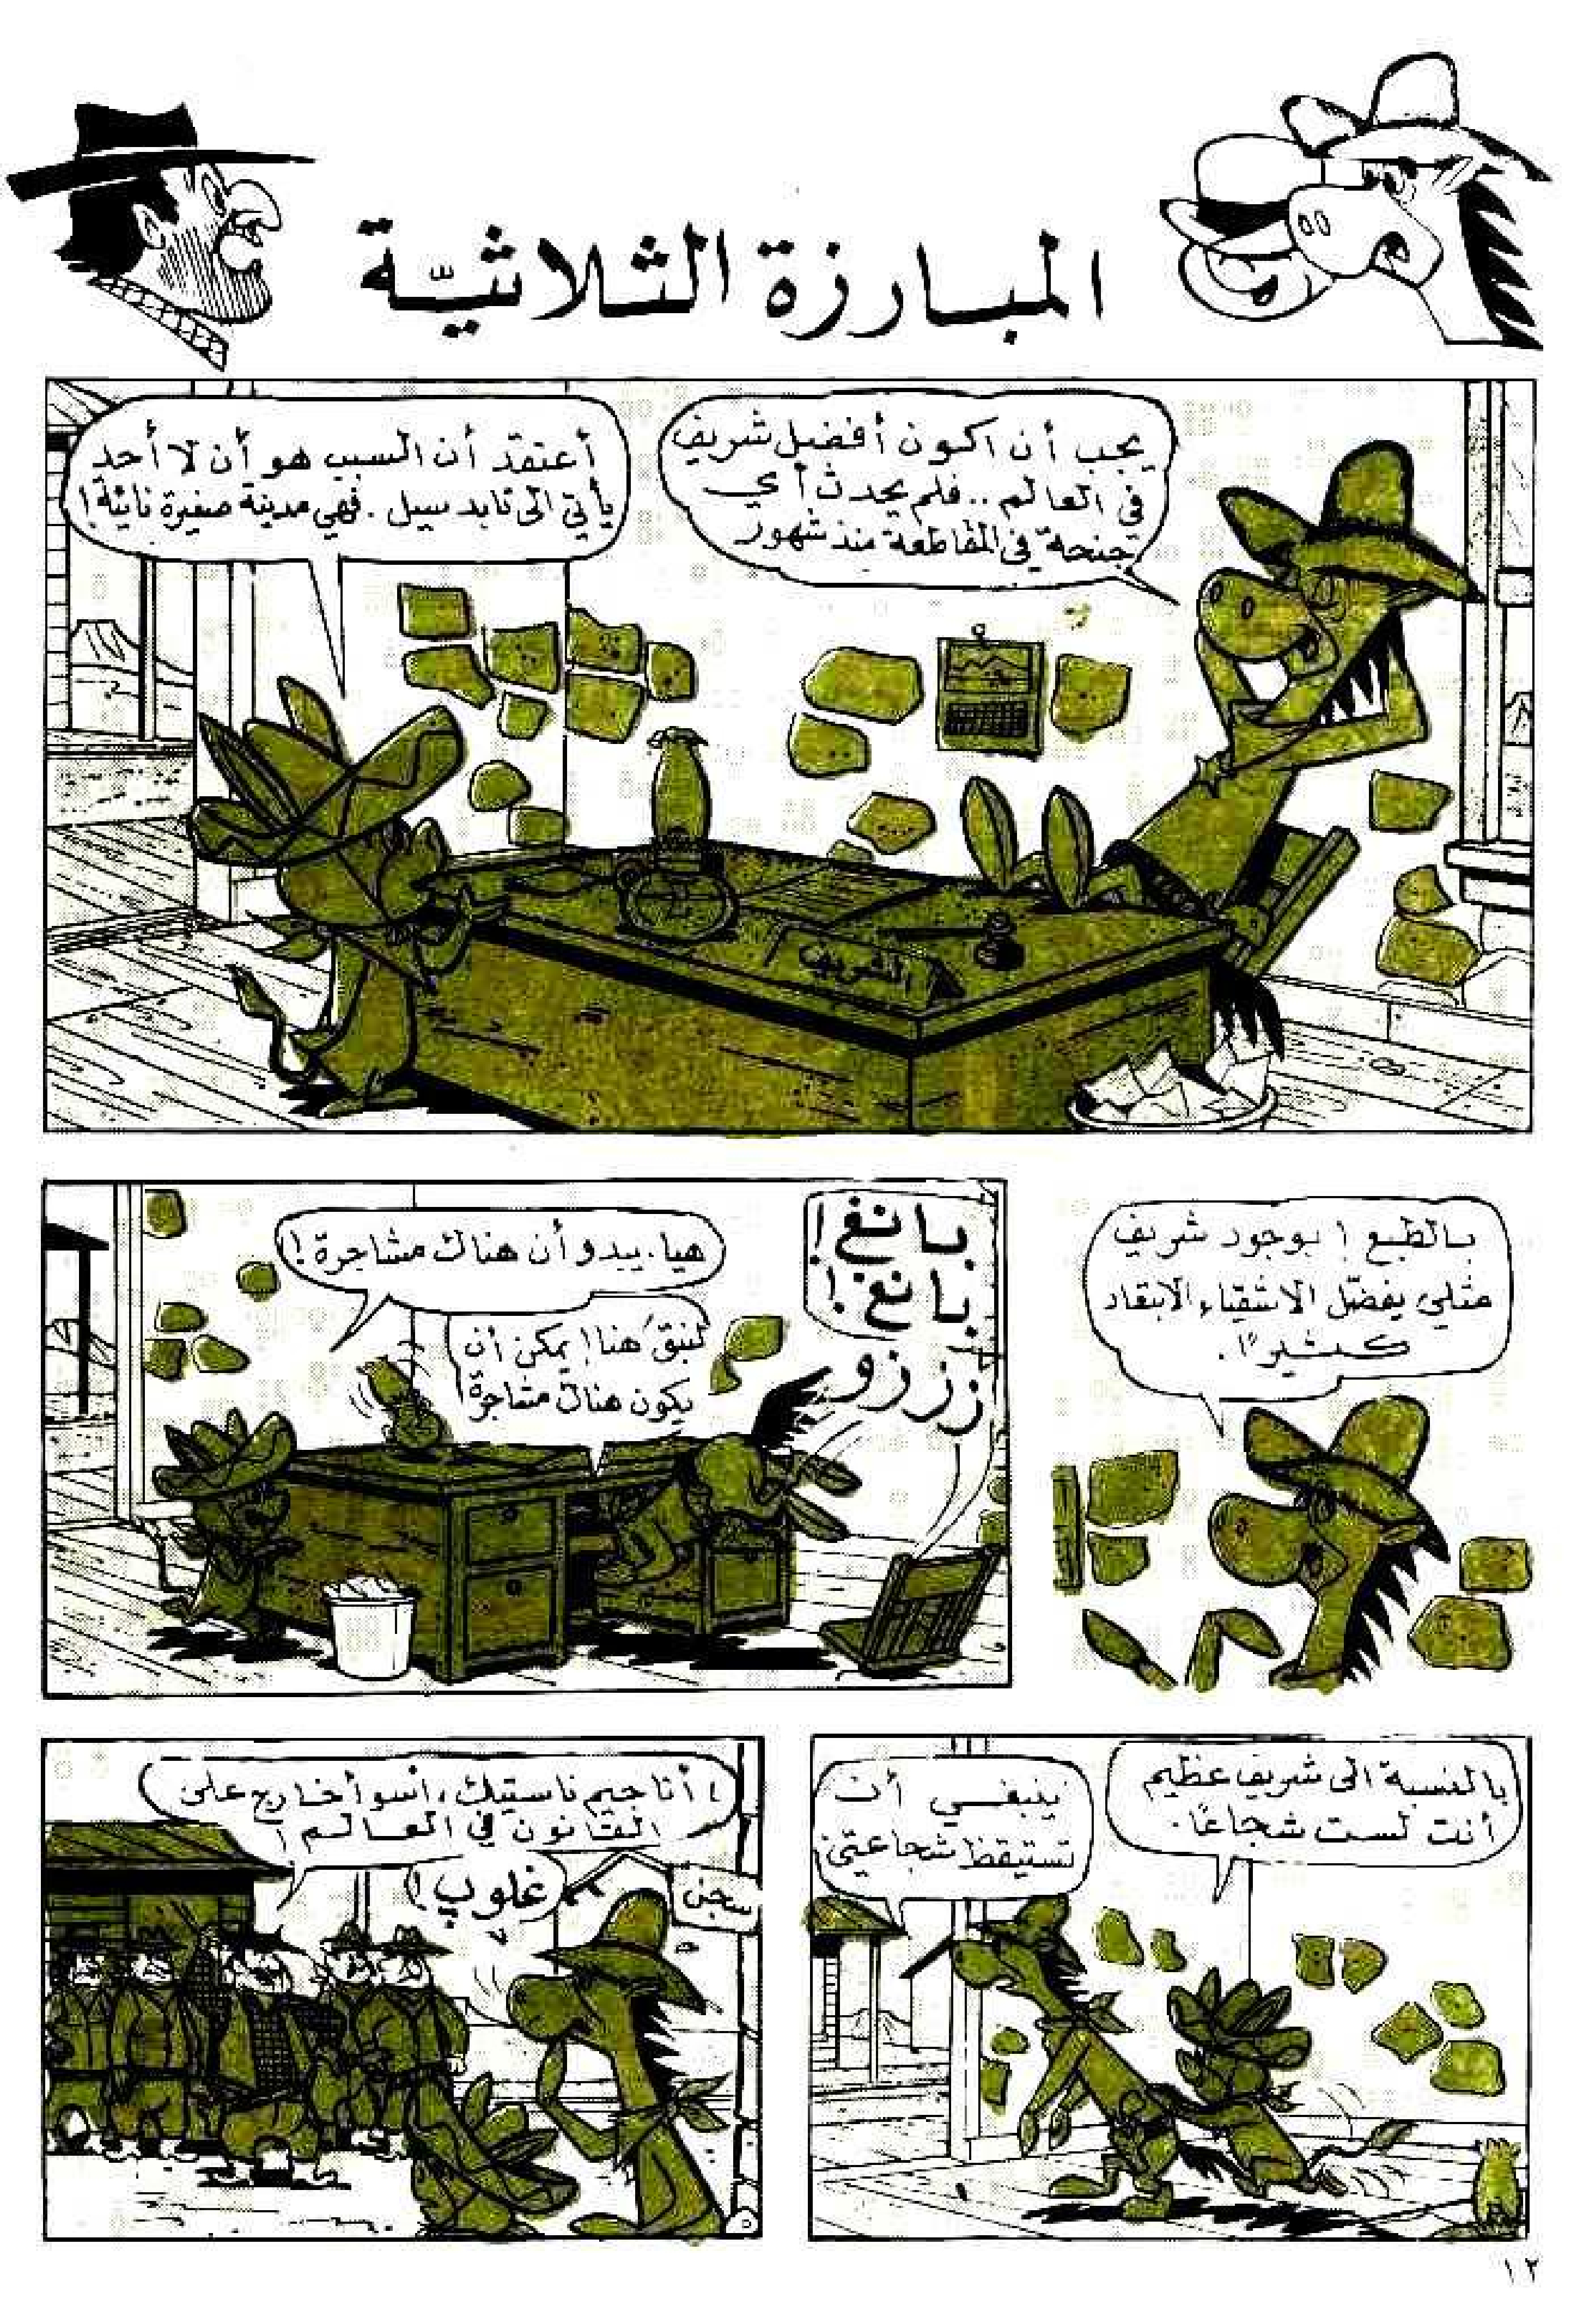 المبارزة الثلاثيّة
يجب أن اكون أفضل شريف
في العالم .. فلم يحدث أي
جنحة في المقاطعة منذ شهور
أعتقد أن السبب هو أن لا أحد
يأتي الى تابد سبيل . فهي مدينة صغيرة نائية !
الشريف
بالطبع ! بوجود شريف
مثلي يفضّل الاشقياء الابتعاد
كثيرًا .
بانغ !
بانغ !
زززوو
هيا . يبدو أن هناك مشاجرة !
لنبقَ هنا ! يمكن أن
يكون هناك مشاجرة !
بالنسبة الى شريف عظيم
أنت لست شجاعًا .
ينبغي أن
تستيقظ شجاعتي
أنا جيم ناستيك ، اسوأ خارج على
القانون في العالم !
غلوب !
سجن
١٢